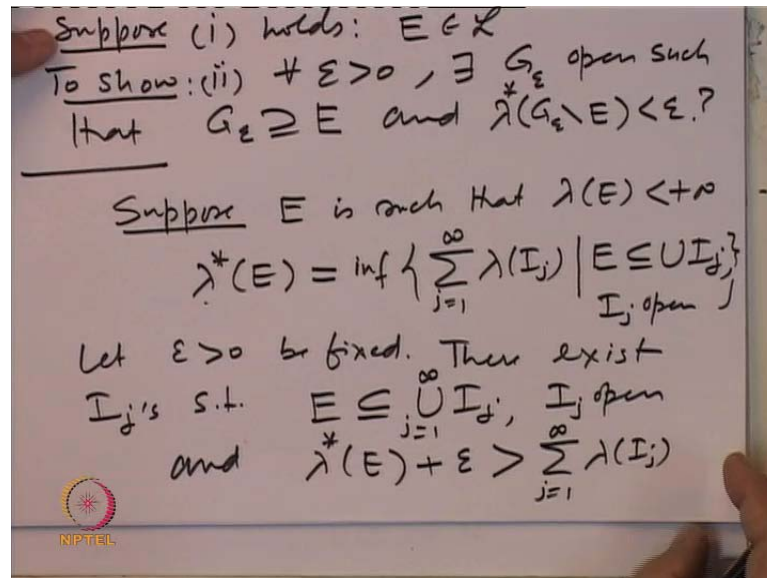 Suppose (i) holds: E ∈ L
To show: (ii) ∀ ε>0, ∃ G_ε open such
that G_ε ⊇ E and λ*(G_ε \ E) < ε.?
Suppose E is such that λ(E) < +∞
λ*(E) = inf { ∑_{j=1}^∞ λ(I_j) | E ⊆ ∪ I_j, I_j open }
Let ε>0 be fixed. There exist
I_j's s.t. E ⊆ ∪_{j=1}^∞ I_j, I_j open
and λ*(E) + ε > ∑_{j=1}^∞ λ(I_j)
NPTEL